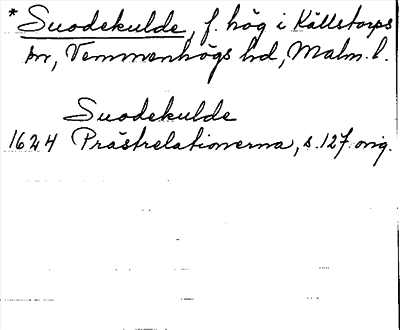 * Suodekulde, f. hög i Källstorps
sn, Vemmenhögs hd, Malm. l.
Suodekulde
1624 Prästrelationerna, s. 127. orig.